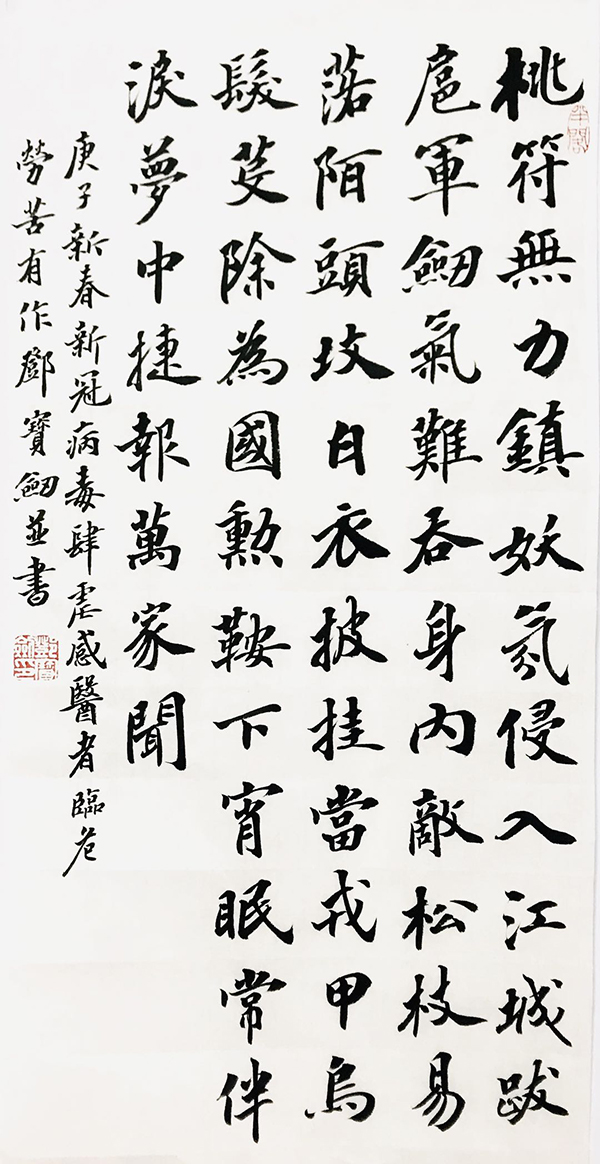 桃符無力鎮妖氛侵入江城跋
扈軍劒氣難吞身內敵松枝易
落陌頭坟白衣披挂當戎甲烏
髮芟除為國勲鞍下宵眠常伴
淚夢中捷報萬家聞
庚子新春新冠病毒肆虐感醫者臨危
勞苦有作鄧寶劒並書